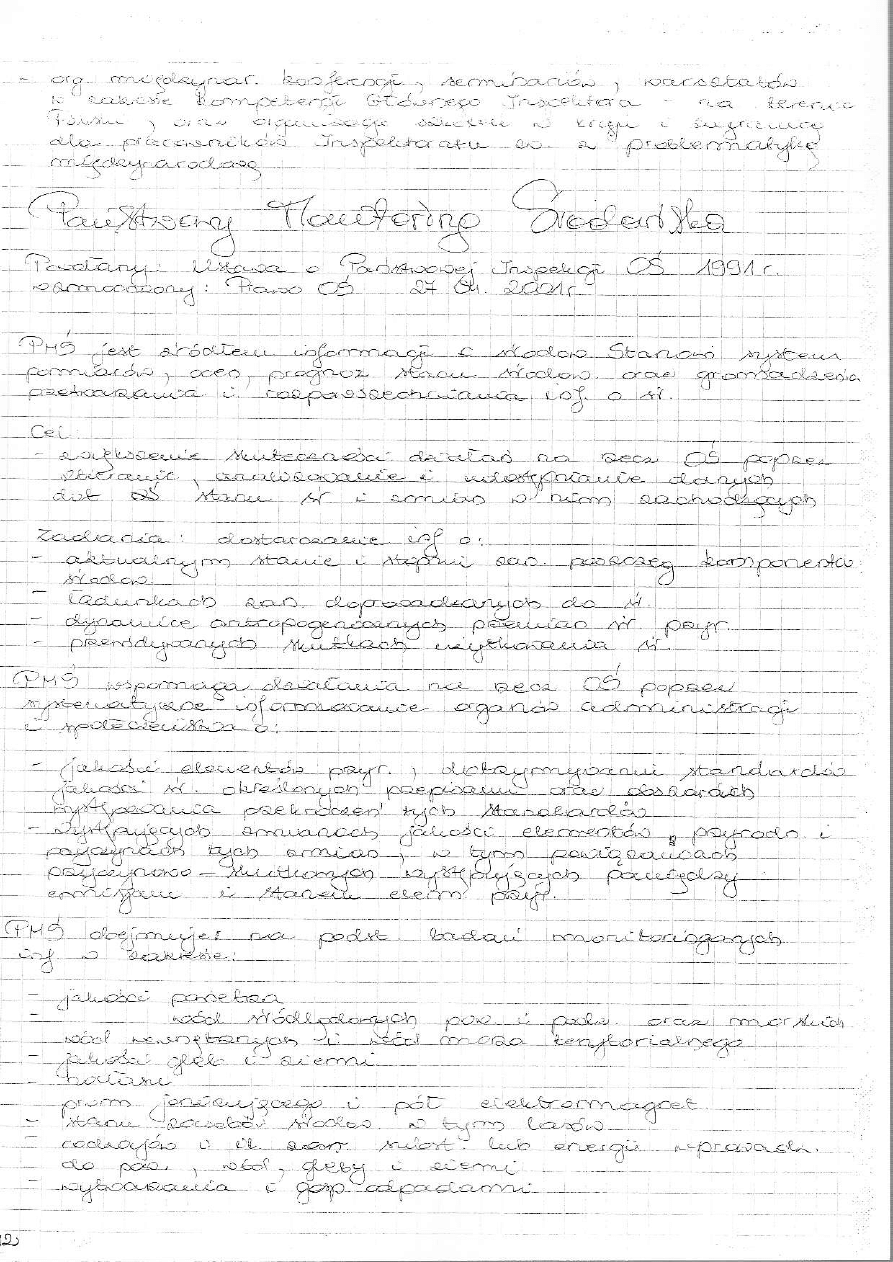 - org międzynar. konferencji, seminariów, warsztatów
w zakresie kompetencji Głównego Inspektora - na terenie
Polski, oraz organizacja szkoleń w kraju i zagranicą
dla pracowników Inspektoratu zw. z problematyką
międzynarodową
Państwowy Monitoring Środowiska
Powołany: Ustawa o Państwowej Inspekcji OŚ 1991 r.
wzmocniony: Prawo OŚ 27 04. 2001r
PMŚ jest źródłem informacji o środow. Stanowi system
pomiarów, ocen, prognoz stanu środow. oraz gromadzenia
przetwarzania i rozpowszechniania inf. o śr.
Cel:
- zwiększenie skuteczności działań na rzecz OŚ poprzez
zbieranie, analizowanie i udostępnianie danych
dot stanu śr i zmian w nim zachodzących
Zadania: dostarczanie inf o:
- aktualnym stanie i stopniu zan. poszczeg komponentów
środow
- ładunkach zan. doprowadzanych do śr.
- dynamice antropogenicznych przemian śr. przyr.
- przewidywanych skutkach użytkowania śr.
PMŚ wspomaga działania na rzecz OŚ poprzez
systematyczne informowanie organów administracji
i społeczeństwa o:
- jakości elementów przyr., dotrzymywaniu standardów
jakości śr. określonych przepisami oraz obszarach
występowania przekroczeń tych standardów
- występujących zmianach jakości elementów przyrodn i
przyczynach tych zmian, w tym powiązaniach
przyczynowo-skutkowych występujących pomiędzy
emisjami i stanem elem przyr.
PMŚ obejmuje na podst badań monitoringowych
inf w zakresie:
- jakości powietrza
- wód śródlądowych pow i podz. oraz morskich
wód wewnętrznych i wód morza terytorialnego
- jakości gleb i ziemi
- hałasu
prom jonizującego i pól elektromagnet
- stanu zasobów środow. w tym lasów
- rodzajów i il zan. subst. lub energii wprowadz.
do pow., wód, gleby i ziemi
- wytwarzania i gosp odpadami
12